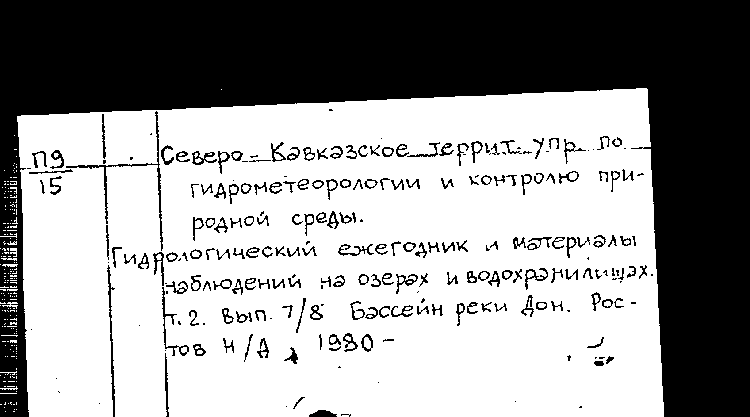 П9
15
Северо-Кавказское террит. упр. по
гидрометеорологии и контролю при-
родной среды.
Гидрологический ежегодник и материалы
наблюдений на озерах и водохранилищах.
т. 2. Вып. 7/8 Бассейн реки Дон. Рос-
тов Н/Д, 1980 -